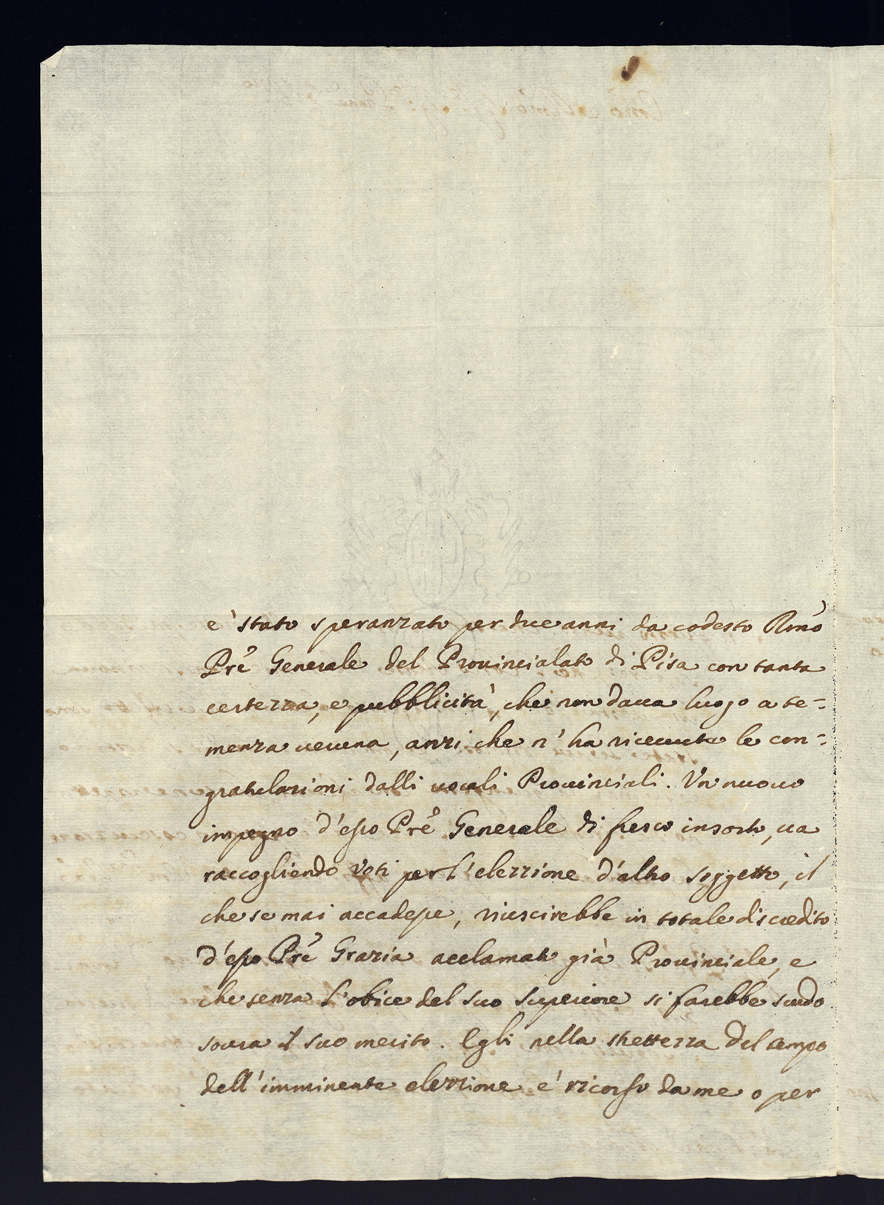 e' stato speranzato per due anni da codesto Rmo
Pre Generale del Prouincialato di Pisa con tanta
certezza, e pubblicità, che non daua luogo a te-
menza ueruna, anzi che n'ha riceuute le con-
gratulazioni dalli uocali Prouinciali. Un nuouo
impegno d'esso Pre Generale di fresco insorto, ua
raccogliendo voti per l'elezzione d'altro soggetto, il
che se mai accadesse, riuscirebbe in totale discredito
d'esso Pre Grazia acclamato già Prouinciale, e
che senza l'obice del suo Superiore si farebbe scudo
soura il suo merito. Egli nella strettezza del tempo
dell'imminente elezzione e' ricorso da me o per